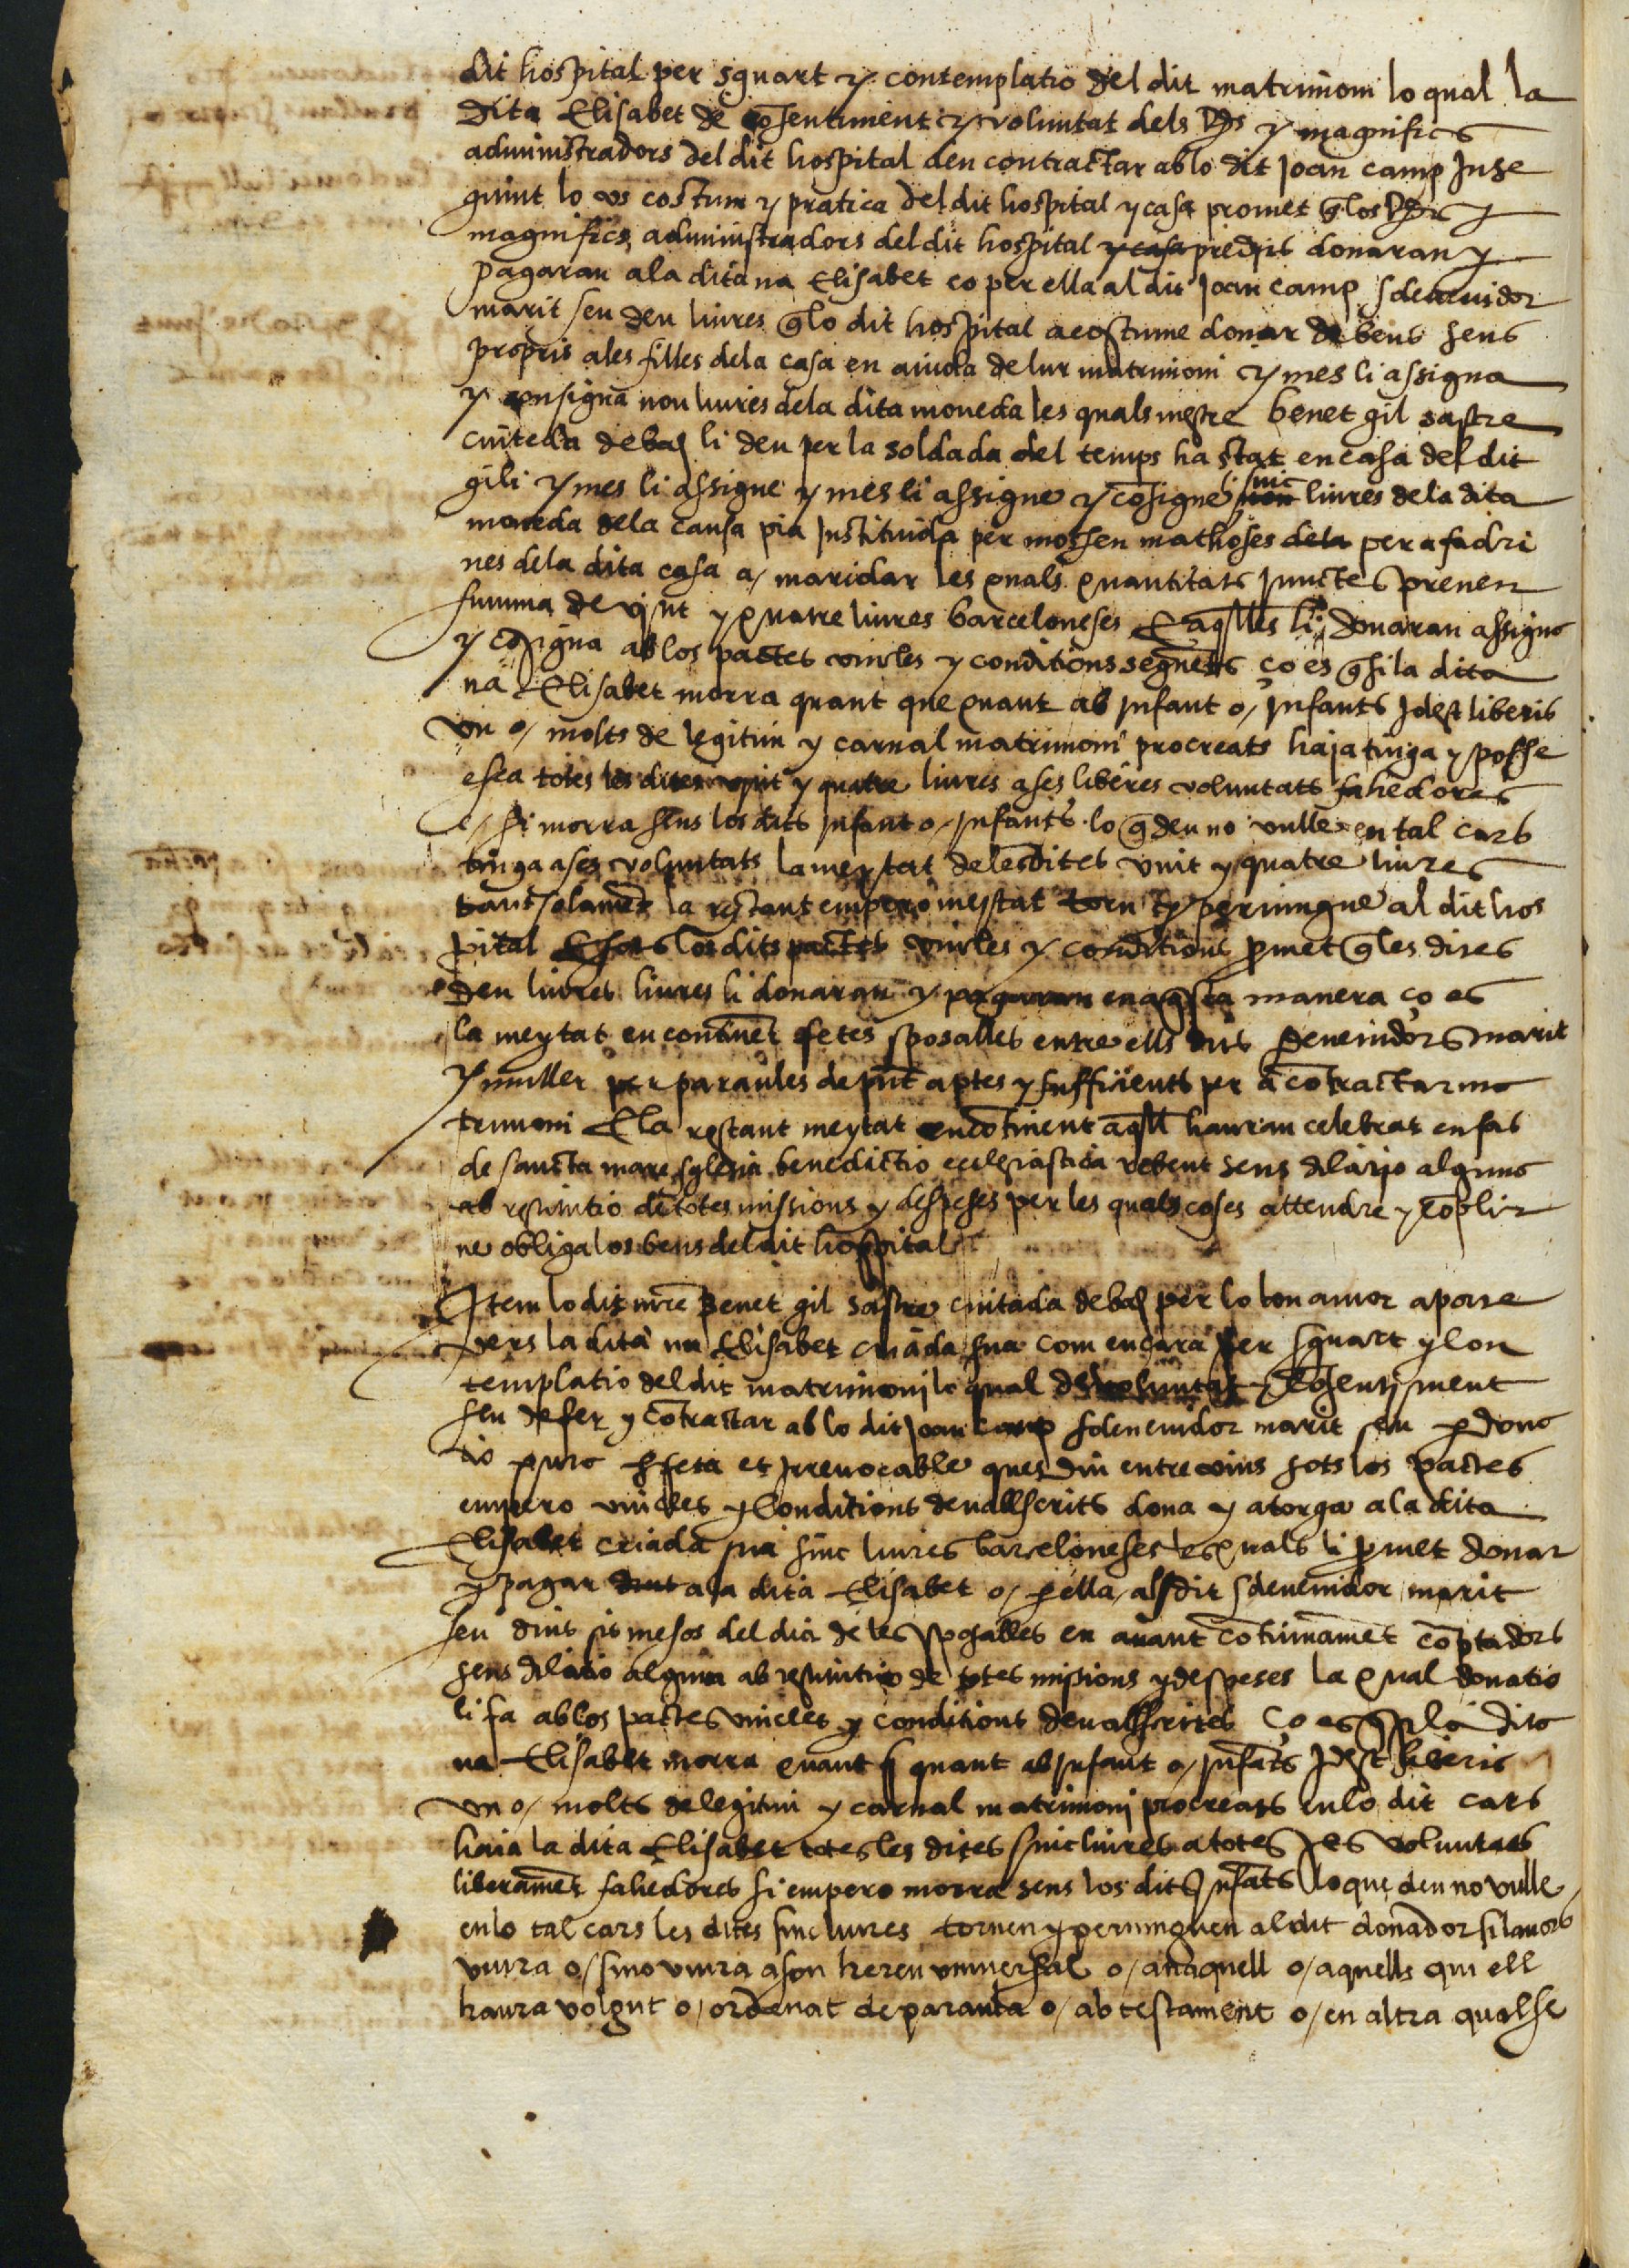 dit hospital per sguart y contemplatio del dit matrimoni lo qual la
dita Elisabet de cõsentiment y voluntat dels Rds y magnifics
administradors del dit hospital deu contractar ab lo dit Joan camp Inse
guint lo us costum y pratica del dit hospital y casa promet q̃ los Rds y
magnifics administradors del dit hospital y casa predits donaran y
pagaran a la dita na Elisabet eo per ella al dit Joan camp sdevenidor
marit seu deu liures q̃ lo dit hospital acostume donar de bens seus
propris a les filles de la casa en aiuda de lur matrimoni y mes li assigna
y consigna nou liures de la dita moneda les quals mestre benet gil sastre
ciuteda de bar̃ li deu per la soldada del temps ha stat en casa del dit
gili y mes li assigne y mes li assigne y cõsigne sinc nou liures de la dita
moneda de la causa pia Instituida per mossen mathoses dela per a fadri
nes de la dita casa a/ maridar les quals quantitats junctes prenen
summa de vint y quatre liures barceloneses E aq̃lles li donaran assigna
y cõsigna ab los pactes vincles y conditions seguẽts ço es q̃ si la dita
na Elisabet morra quant que quant ab jnfant o/ jnfants Jdest liberis
un o/ molts de legitim y carnal matrimoni procreats haja tinga y posse
esca totes les dites vint y quatre liures a ses liberes voluntats fahedores
e/ si morra sens los dits jnfant o/ jnfants lo q̃ deu no vulle en tal cars
tinga a ses voluntats la meytat de les dites vint y quatre liures
tant solamẽt la restant empero meytat torn y pervingue al dit hos
pital E sots los dits pactes vincles y conditions p̃met q̃ les dites
deu liures liures li donaran y pagaran en aq̃sta manera ço es
la meytat en continẽt fetes sposalles entre ells dits sdevenidors marit
y muller per paraules de pñt aptes y sufficients per a cõtractar ma
trimoni E la restant meytat encõtinent aq̃ll hauran celebrat en fas
de sancta mare sglesia benedictio ecclesiastica rebent sens dilatio alguna
ab restitutio de totes missions y despeses per les quals coses attendre y cõplir
ne obliga los bens del dit hospital
Item lo dit mr̃e Benet gil sastre ciutada de bar̃ per lo bon amor aporte
vers la dita na Elisabet criada sua com encara per sguart y con
templatio del dit matrimoni lo qual de voluntat y cõsentiment
seu de fer y cõtractar ab lo dit Joan Camp sdevenidor marit seu per dona
tio pura p̃feta et Irrevocable ques diu entre vius sots los pactes
empero vincles y Conditions devallscrits dona y atorga a la dita
Elisabet criada sua sinc liures barceloneses les quals li p̃met donar
y pagar dins a la dita Elisabet o/ p̃ ella al dit sdevenidor marit
seu dins sis mesos del dia de les sposalles en auant cõtinuamẽt cõptadors
sens dilatio alguna ab restitutio de totes missions y despeses la qual donatio
li fa ab los pactes vincles y conditions devallscrites Ço es q̃ si la dita
na Elisabet morra quant q̃ quant ab jnfant o/ jnfãts Jdest liberis
un o/ molts de legitim y carnal matrimonj procreats en lo dit cars
haia la dita Elisabet totes les dites sinc liures a totes ses voluntats
liberamẽt fahedores si empero morra sens los dits Jnfãts lo que deu no vulle
en lo tal cars les dites sinc liures tornen y pervinguen al dit donador si lavors
viura o/ si no viura a son hereu universal o/ a aquell o/ aquells qui ell
haura volgut o/ ordenat de paraula o/ ab testament o/ en altra qualse